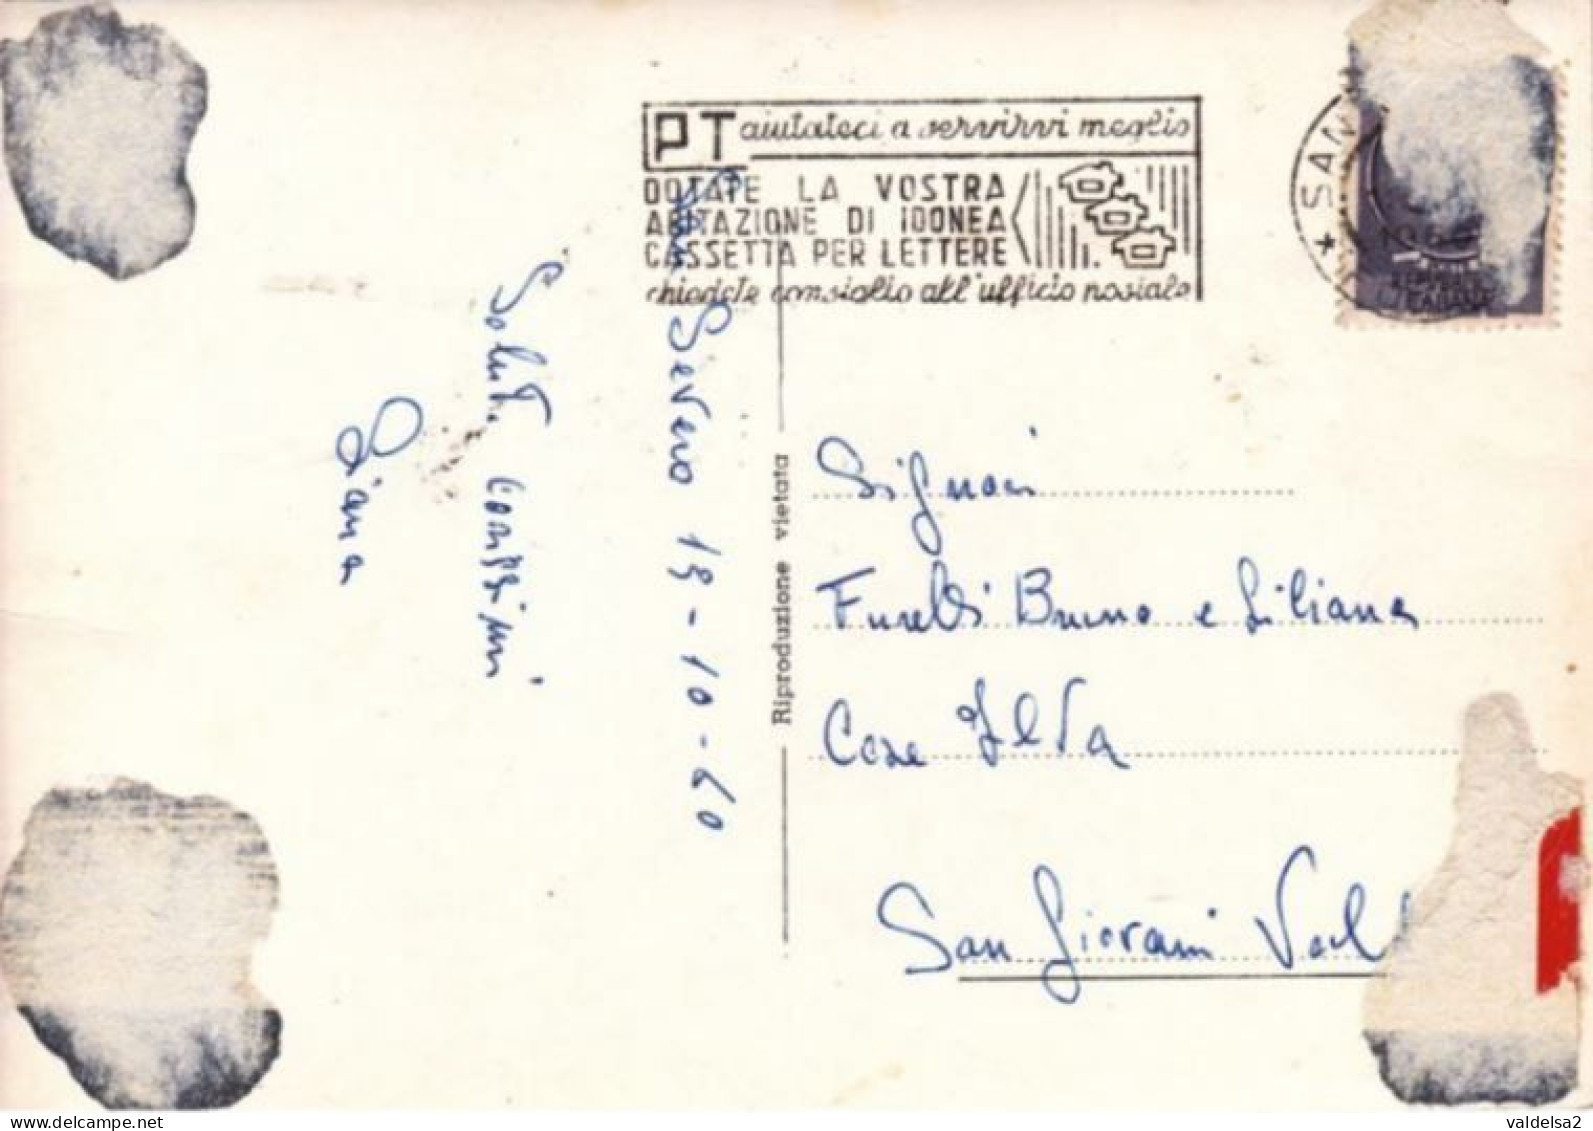 PT aiutateci a servirvi meglio
DOTATE LA VOSTRA
ABITAZIONE DI IDONEA
CASSETTA PER LETTERE
chiedete consiglio all'ufficio postale
SAN
REPUBBLICA
ITALIANA
San Severo 19-10-60
Saluti carissimi
Liana
Riproduzione vietata
Signori
Furelli Bruno e Liliana
Case Ilva
San Giovanni Vald
www.delcampe.net
valdelsa2